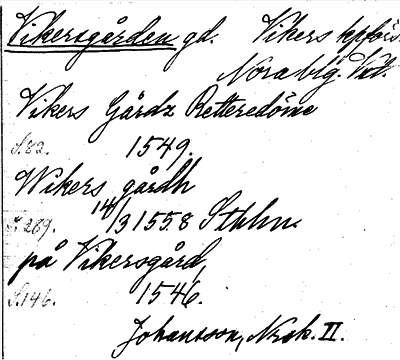 Vikersgården gd. Vikers kpförs.
Nora blg. Vstl.
Vikers Gårdz Retteredöme
S. 82. 1549.
Wikers gårdh
S. 289. 14/3 1558 Sthlm.
på Vikersgård
S. 146. 1546.
Johansson, Norask. II.